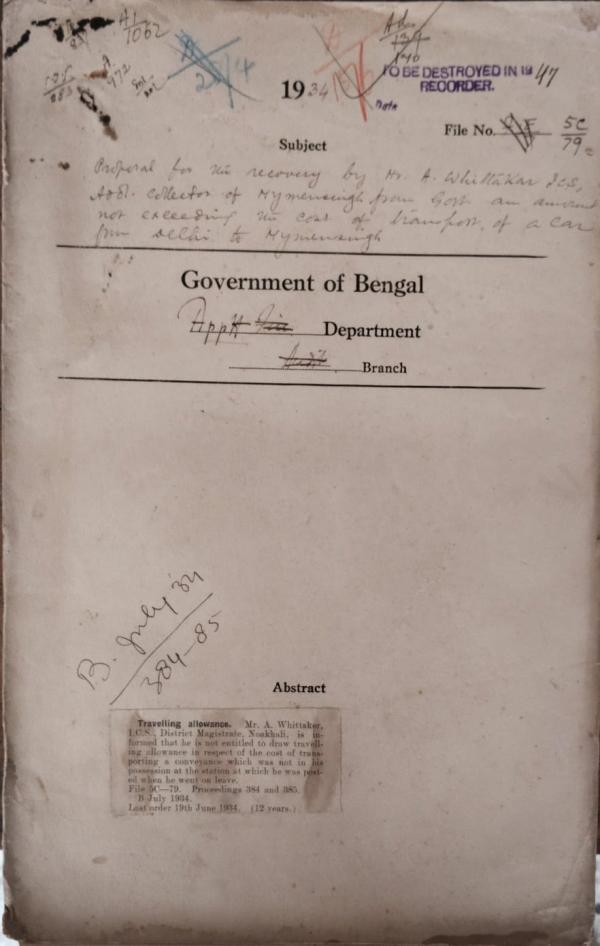 A1
1062
A
972
25/4
TO BE DESTROYED IN 1947
RECORDER.
Date
1934
File No. 5C
79
Subject
Proposal for the recovery by Mr. A. Whittaker I.C.S,
Addl. Collector of Mymensingh from Govt. an amount
not exceeding the cost of transport of a car
from Delhi to Mymensingh
Government of Bengal
Appt Department
Audit Branch
B. July '34
384-85
Abstract
Travelling allowance. Mr. A. Whittaker,
I.C.S., District Magistrate, Noakhali, is in-
formed that he is not entitled to draw travell-
ing allowance in respect of the cost of trans-
porting a conveyance which was not in his
possession at the station at which he was post-
ed when he went on leave.
File 5C—79. Proceedings 384 and 385.
B July 1934.
Last order 19th June 1934. (12 years.)